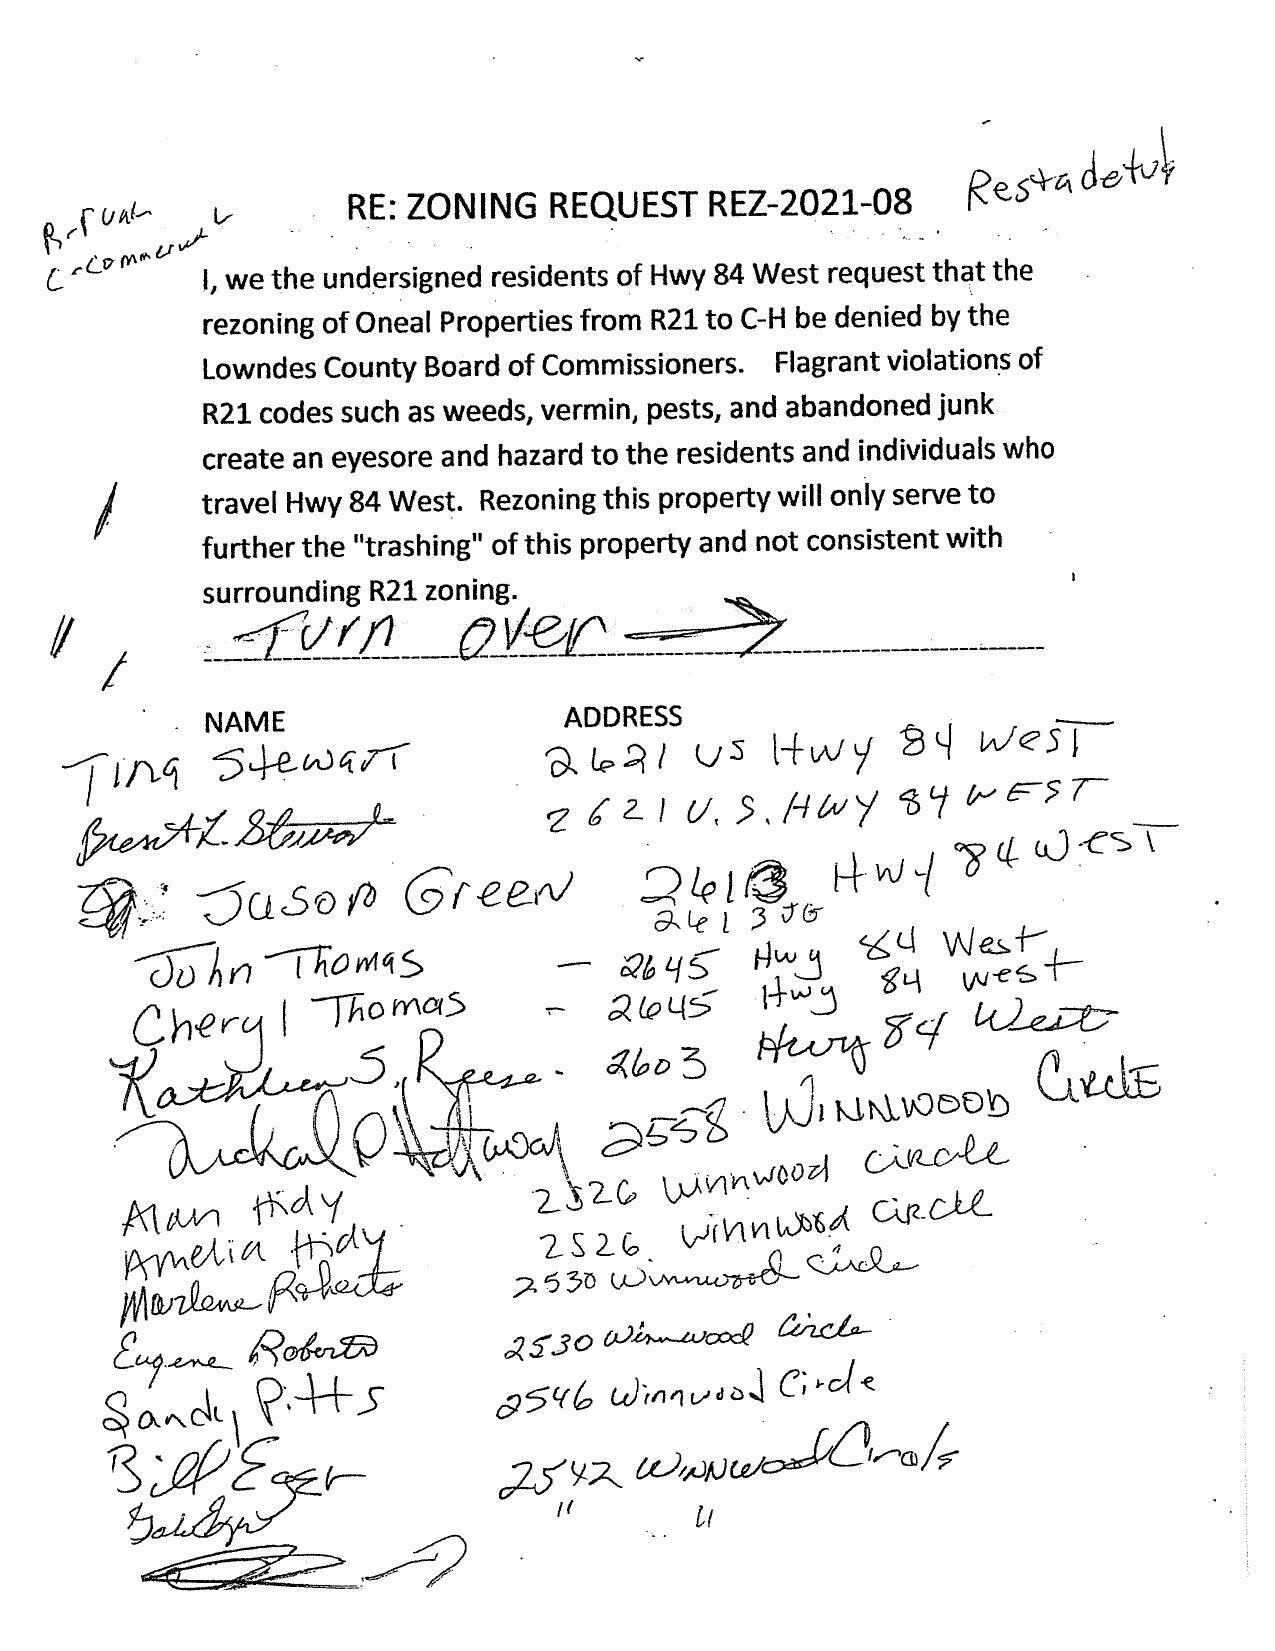 RE: ZONING REQUEST REZ-2021-08
I, we the undersigned residents of Hwy 84 West request that the
rezoning of Oneal Properties from R21 to C-H be denied by the
Lowndes County Board of Commissioners. Flagrant violations of
R21 codes such as weeds, vermin, pests, and abandoned junk
create an eyesore and hazard to the residents and individuals who
travel Hwy 84 West. Rezoning this property will only serve to
further the "trashing" of this property and not consistent with
surrounding R21 zoning.
Turn over
NAME ADDRESS
Tina Stewart 2621 US Hwy 84 West
Brent L. Stewart 2621 U.S. HWY 84 WEST
Jason Green 2613 Hwy 84 West
2613 JG
John Thomas - 2645 Hwy 84 West
Cheryl Thomas - 2645 Hwy 84 west
Kathleen S. Reese - 2603 Hwy 84 West
2558 WINNWOOD CIRCLE
Alan Hidy 2526 Winnwood Circle
Amelia Hidy 2526 Winnwood Circle
Marlene Roberts 2530 Winnwood Circle
Eugene Roberts 2530 Winnwood Circle
Sandy Pitts 2546 Winnwood Circle
Bill Eger 2542 WINNWOOD Circle
" "